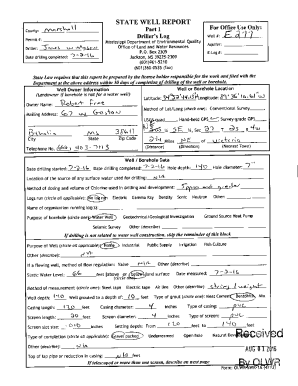 STATE WELL REPORT
Part 1
Driller's Log
Mississippi Department of Environmental Quality
Office of Land and Water Resources
P.O. Box 2309
Jackson, MS 39225-2309
(601)961-5210
County: Marshall
Permit #:
Driller: James W Mason
Date drilling completed: 7-2-16
For Office Use Only:
Well #: E277
Aquifer:
E-Log #:
State Law requires that this report be prepared by the license holder responsible for the work and filed with the Department at the above address within 30 days of completion of drilling of the well or borehole.
Well Owner Information
(Landowner if borehole is not for a water well)
Owner Name: Robert Free
Mailing Address: 67 W Gaston
Byhalia MS 38611
City State Zip Code
Telephone No.
Well or Borehole Location
Method of Lat/Long (check one): Conventional Survey
USGS quad Hand-held GPS Survey-grade GPS
(Distance) (Direction) (Nearest Town)
Well / Borehole Data
Date drilling started: 7-2-16 Date drilling completed: 7-2-16 Hole depth: 140 Hole diameter: 7"
Location of the source of any surface water used for drilling: N/A
Method of dosing and volume of Chlorine used in drilling and development:
Logs run (circle all applicable): No log run Electric Gamma Ray Density Sonic Neutron Other:
Name of organization running log(s):
Purpose of borehole (circle one): Water Well Geotechnical/Geological Investigation Ground Source Heat Pump
Seismic Survey Other (describe)
If drilling is not related to water well construction, skip the remainder of this block
Purpose of Well (circle all applicable): Home Industrial Public Supply Irrigation Fish Culture
Other (describe):
If a flowing well, method of flow regulation: Valve N/A Other (describe)
Static Water Level: 66 feet above or below land surface Date measured: 7-2-16
Method of measurement (circle one): Steel tape Electric tape Air line Other (describe): string / weight
Well depth: 140 Well grouted to a depth of: 10 feet Type of grout (circle one): Neat Cement Bentonite Mix
Casing length: 120 feet Casing diameter: 4 inches Type of casing: PVC
Screen length: 20 feet Screen diameter: 4 inches Type of screen: PVC
Screen slot size: .010 inches Setting depth: From 120 feet to 140 feet
Type of completion (circle all applicable): Gravel packed Underreamed Open hole Natural Development
Other (describe):
Top of lap pipe or reduction in casing: feet
If telescoped or more than one screen, describe on next page
Received
AUG 01 2016
By OLWR